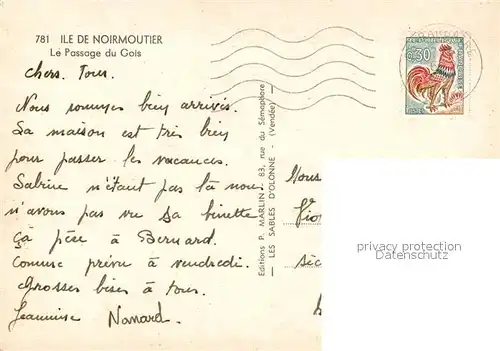 781 ILE DE NOIRMOUTIER
Le Passage du Gois
chers. Tous.
Nous sommes bien arrivés.
La maison est très bien
pour passer les vacances.
Sabine n'étant pas là nous
n'avons pas vu sa binette
çà père à Bernard.
Comme prévu à vendredi.
Grosses bises à tous.
Jeannine Nanard.
Editions P. MARLIN - 83, rue du Sémaphore
— LES SABLES D'OLONNE - (Vendée) —
0,30
privacy protection
oldthing.de